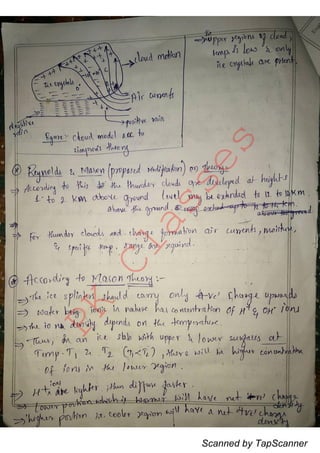 → In upper regions of cloud,
temp is low & only
ice crystals are present.
cloud motion
Ice crystals
0°
Air currents
negative
rain
→ positive rain
Figure:- cloud model acc to
Simpson's theory
Reynolds & Mason (proposed modification) on Theory:-
⇒ According to this the thunder clouds are developed at heights
1 to 2 km above ground level may be extended to 12 to 14 km
above the ground
above ground
⇒ For thunder clouds and charge formation air currents, moisture,
& specific temp. range are required.
According to Mason Theory:-
⇒ The ice splinter should carry only +ve charge upwards
⇒ Water being ionic in nature has concentration of H⁺ & OH⁻ ions
⇒ The ion density depends on the temperature.
⇒ Thus, in an ice slab with upper & lower surfaces at
Temp. T1 & T2 (T1<T2), there will be higher concentration
of ions in the lower region.
⇒ H⁺ ions are lighter, thus diffuse faster.
⇒ Lower portion which is warmer will have net -ve charge
density
⇒ higher portion i.e. cooler region will have a net +ve charge
density
PK Classes
Scanned by TapScanner